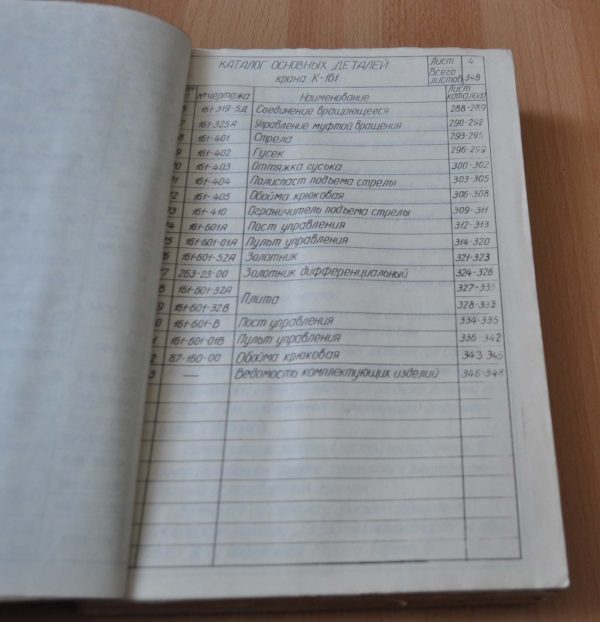 КАТАЛОГ ОСНОВНЫХ ДЕТАЛЕЙ Лист 4
крана К-161 Всего листов 348
№ чертежа Наименование Лист каталога
6 161-319-5Д Соединение вращающееся 288-289
7 161-325А Управление муфтой вращения 290-292
8 161-401 Стрела 293-295
9 161-402 Гусек 296-299
0 161-403 Оттяжка гуська 300-302
1 161-404 Полиспаст подъема стрелы 303-305
2 161-405 Обойма крюковая 306-308
3 161-410 Ограничитель подъема стрелы 309-311
4 161-601А Пост управления 312-313
5 161-601-01А Пульт управления 314-320
6 161-601-52А Золотник 321-323
7 263-23-00 Золотник дифференциальный 324-326
8 161-601-32А Плита 327-335
9 161-601-32В 328-333
0 161-601-В Пост управления 334-335
1 161-601-01В Пульт управления 336-342
2 87-160-00 Обойма крюковая 343-345
3 — Ведомость комплектующих изделий 346-348